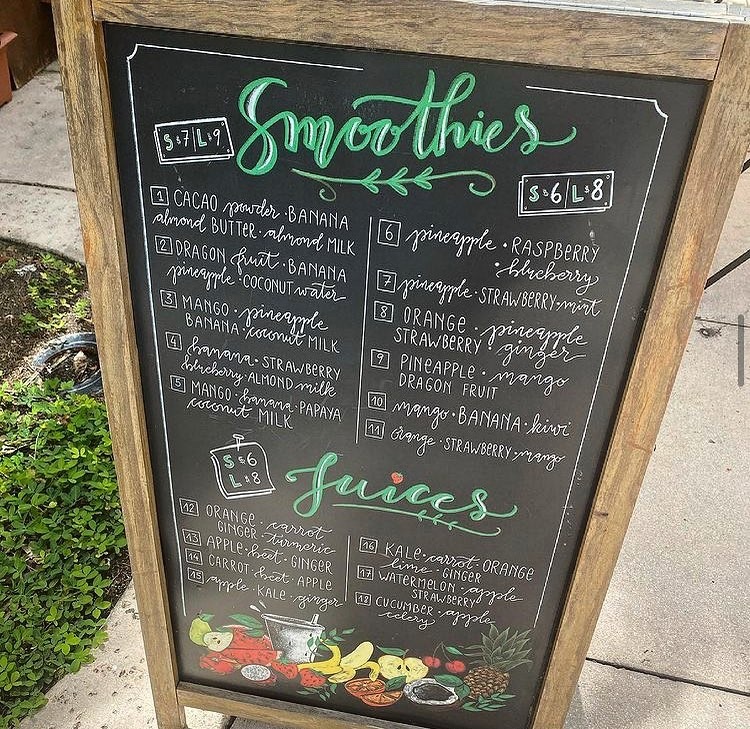 Smoothies
S $7 | L $9
1 CACAO powder · BANANA
almond BUTTER · almond MILK
2 DRAGON fruit · BANANA
pineapple · COCONUT water
3 MANGO · pineapple
BANANA · coconut MILK
4 banana · STRAWBERRY
blueberry · ALMOND milk
5 MANGO · banana · PAPAYA
coconut MILK
S $6 | L $8
6 pineapple · RASPBERRY
· blueberry
7 pineapple · STRAWBERRY · mint
8 ORANGE · pineapple
STRAWBERRY · ginger
9 PINEAPPLE · mango
DRAGON FRUIT
10 mango · BANANA · kiwi
11 orange · STRAWBERRY · mango
S $6
L $8
Juices
12 ORANGE · carrot
GINGER · turmeric
13 APPLE · beet · GINGER
14 CARROT · beet · APPLE
15 apple · KALE · ginger
16 KALE · carrot · ORANGE
lime · GINGER
17 WATERMELON · apple
STRAWBERRY
18 CUCUMBER · apple
celery